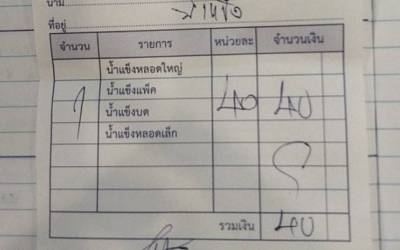 นาม
ที่อยู่
จำนวน รายการ หน่วยละ จำนวนเงิน
น้ำแข็งหลอดใหญ่
น้ำแข็งแพ็ค
1 น้ำแข็งบด 40 40
น้ำแข็งหลอดเล็ก
รวมเงิน 40